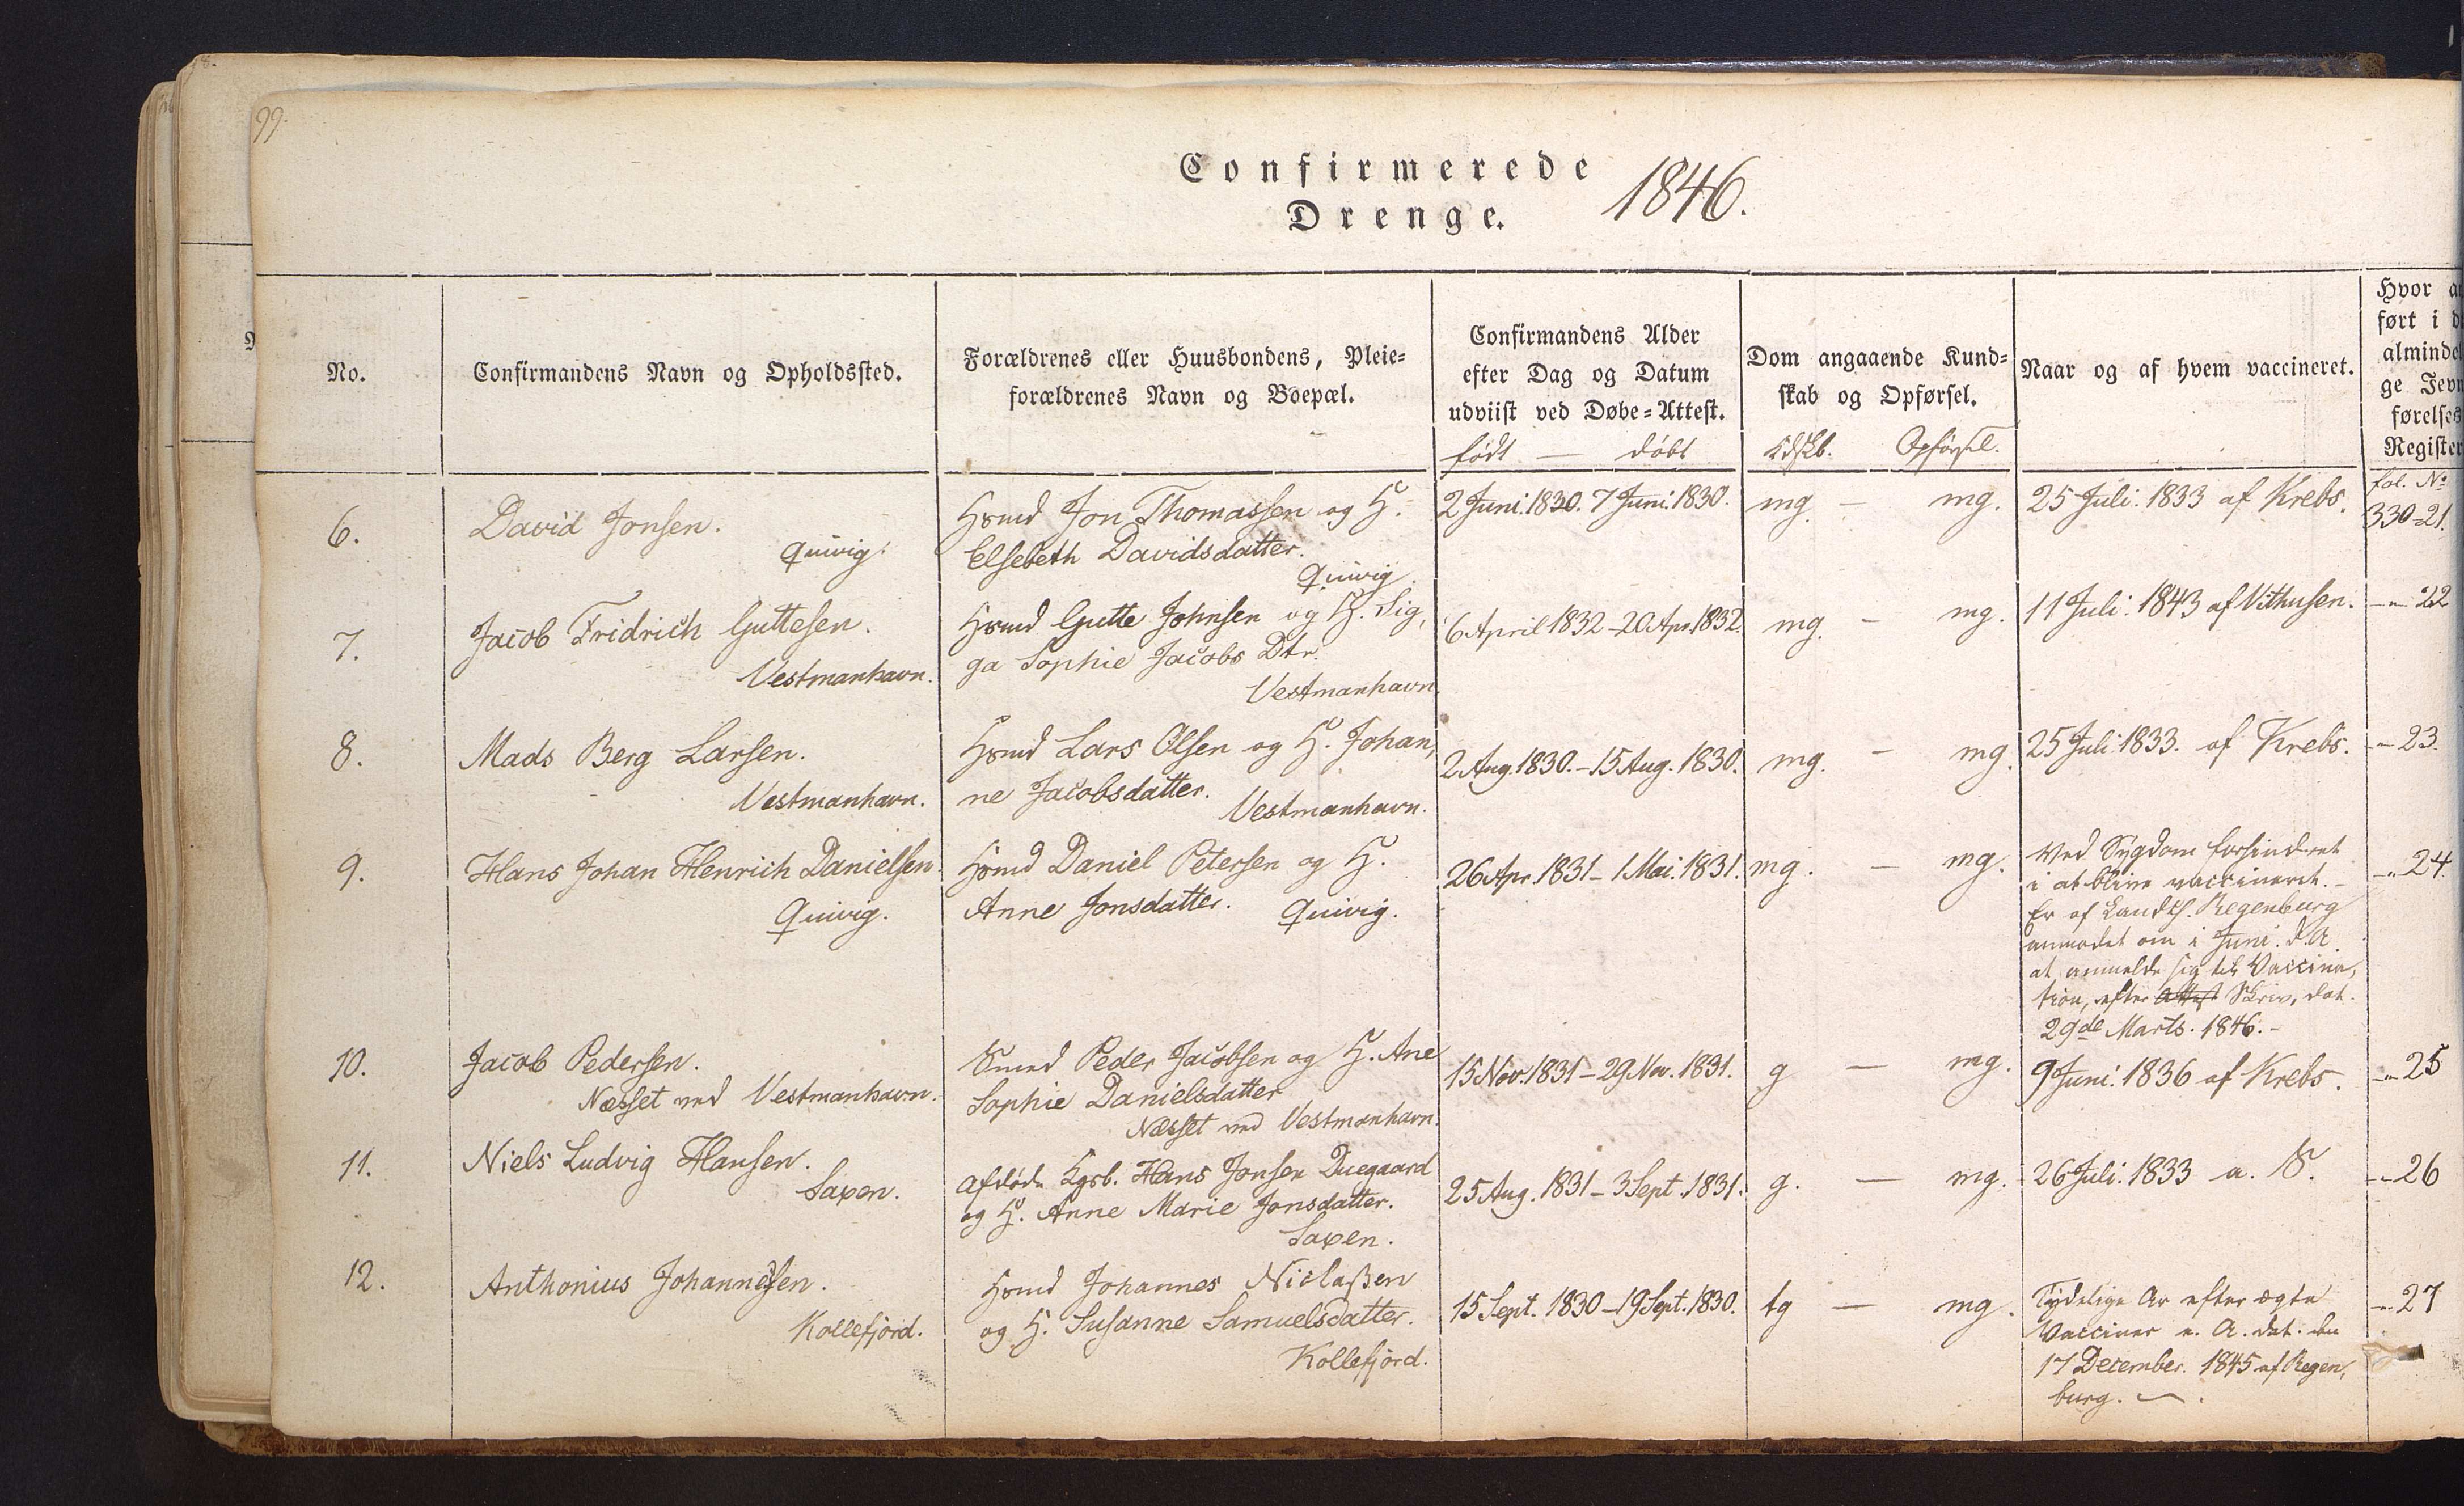 99.
Confirmerede
Drenge.
1846.
No.
Confirmandens Navn og Opholdssted.
Forældrenes eller Huusbondens, Pleie=
forældrenes Navn og Boepæl.
Confirmandens Alder
efter Dag og Datum
udviist ved Døbe=Attest.
født — døbt
Dom angaaende Kund=
skab og Opførsel.
Kdskb. Opførsel.
Naar og af hvem vaccineret.
Hvor
ført i
almindel
ge Jevn
førelses
Register
fol. No
6.
David Jonsen.
Quivig.
Hsmd Jon Thomassen og H.
Elsebeth Davidsdatter.
Quivig.
2 Juni. 1830. 7 Juni. 1830.
mg. — mg.
25 Juli. 1833 af Krebs.
330=21.
7.
Jacob Fridrich Guttesen.
Vestmanhavn.
Hsmd Gutte Johnsen og H. Sig,
ga Sophie Jacobs Dtr.
Vestmanhavn
6 April 1832 - 20 Apr. 1832.
mg. — mg.
11 Juli. 1843 af Vithusen.
-„- 22
8.
Mads Berg Larsen.
Vestmanhavn.
Hsmd Lars Olsen og H. Johan,
ne Jacobsdatter.
Vestmanhavn.
2 Aug. 1830. - 15 Aug. 1830.
mg. — mg.
25 Juli. 1833. af Krebs.
-„- 23.
9.
Hans Johan Henrich Danielsen.
Quivig.
Hsmd Daniel Petersen og H.
Anne Jonsdatter. Quivig.
26 Apr. 1831 - 1 Mai. 1831.
mg. — mg.
Ved Sygdom forhindret
i at blive vaccineret. -
Er af Landch. Regenburg
anmodet om i Juni. d. A.
at anmelde sig til Vaccina,
tion, efter Attest Skriv, dat.
29de Marts. 1846. -
-„- 24.
10.
Jacob Pedersen.
Næsset ved Vestmanhavn.
Smed Peder Jacobsen og H. Ane
Sophie Danielsdatter
Næsset ved Vestmanhavn.
15 Nov. 1831 - 29 Nov. 1831.
g — mg.
9 Juni. 1836 af Krebs.
-„- 25
11.
Niels Ludvig Hansen.
Saxen.
Afdøde Kgsb. Hans Jonsen Duegaard
og H. Anne Marie Jonsdatter.
Saxen.
25 Aug. 1831 - 3 Sept. 1831.
g. — mg.
26 Juli. 1833 a. S.
-„- 26
12.
Anthonius Johannesen.
Kollefjord.
Hsmd Johannes Niclaßen
og H. Susanne Samuelsdatter.
Kollefjord.
15 Sept. 1830 - 19 Sept. 1830.
tg — mg.
Tydelige Ar efter ægte
Vacciner e. A. dat. den
17 December. 1845 af Regen,
burg.
-„- 27